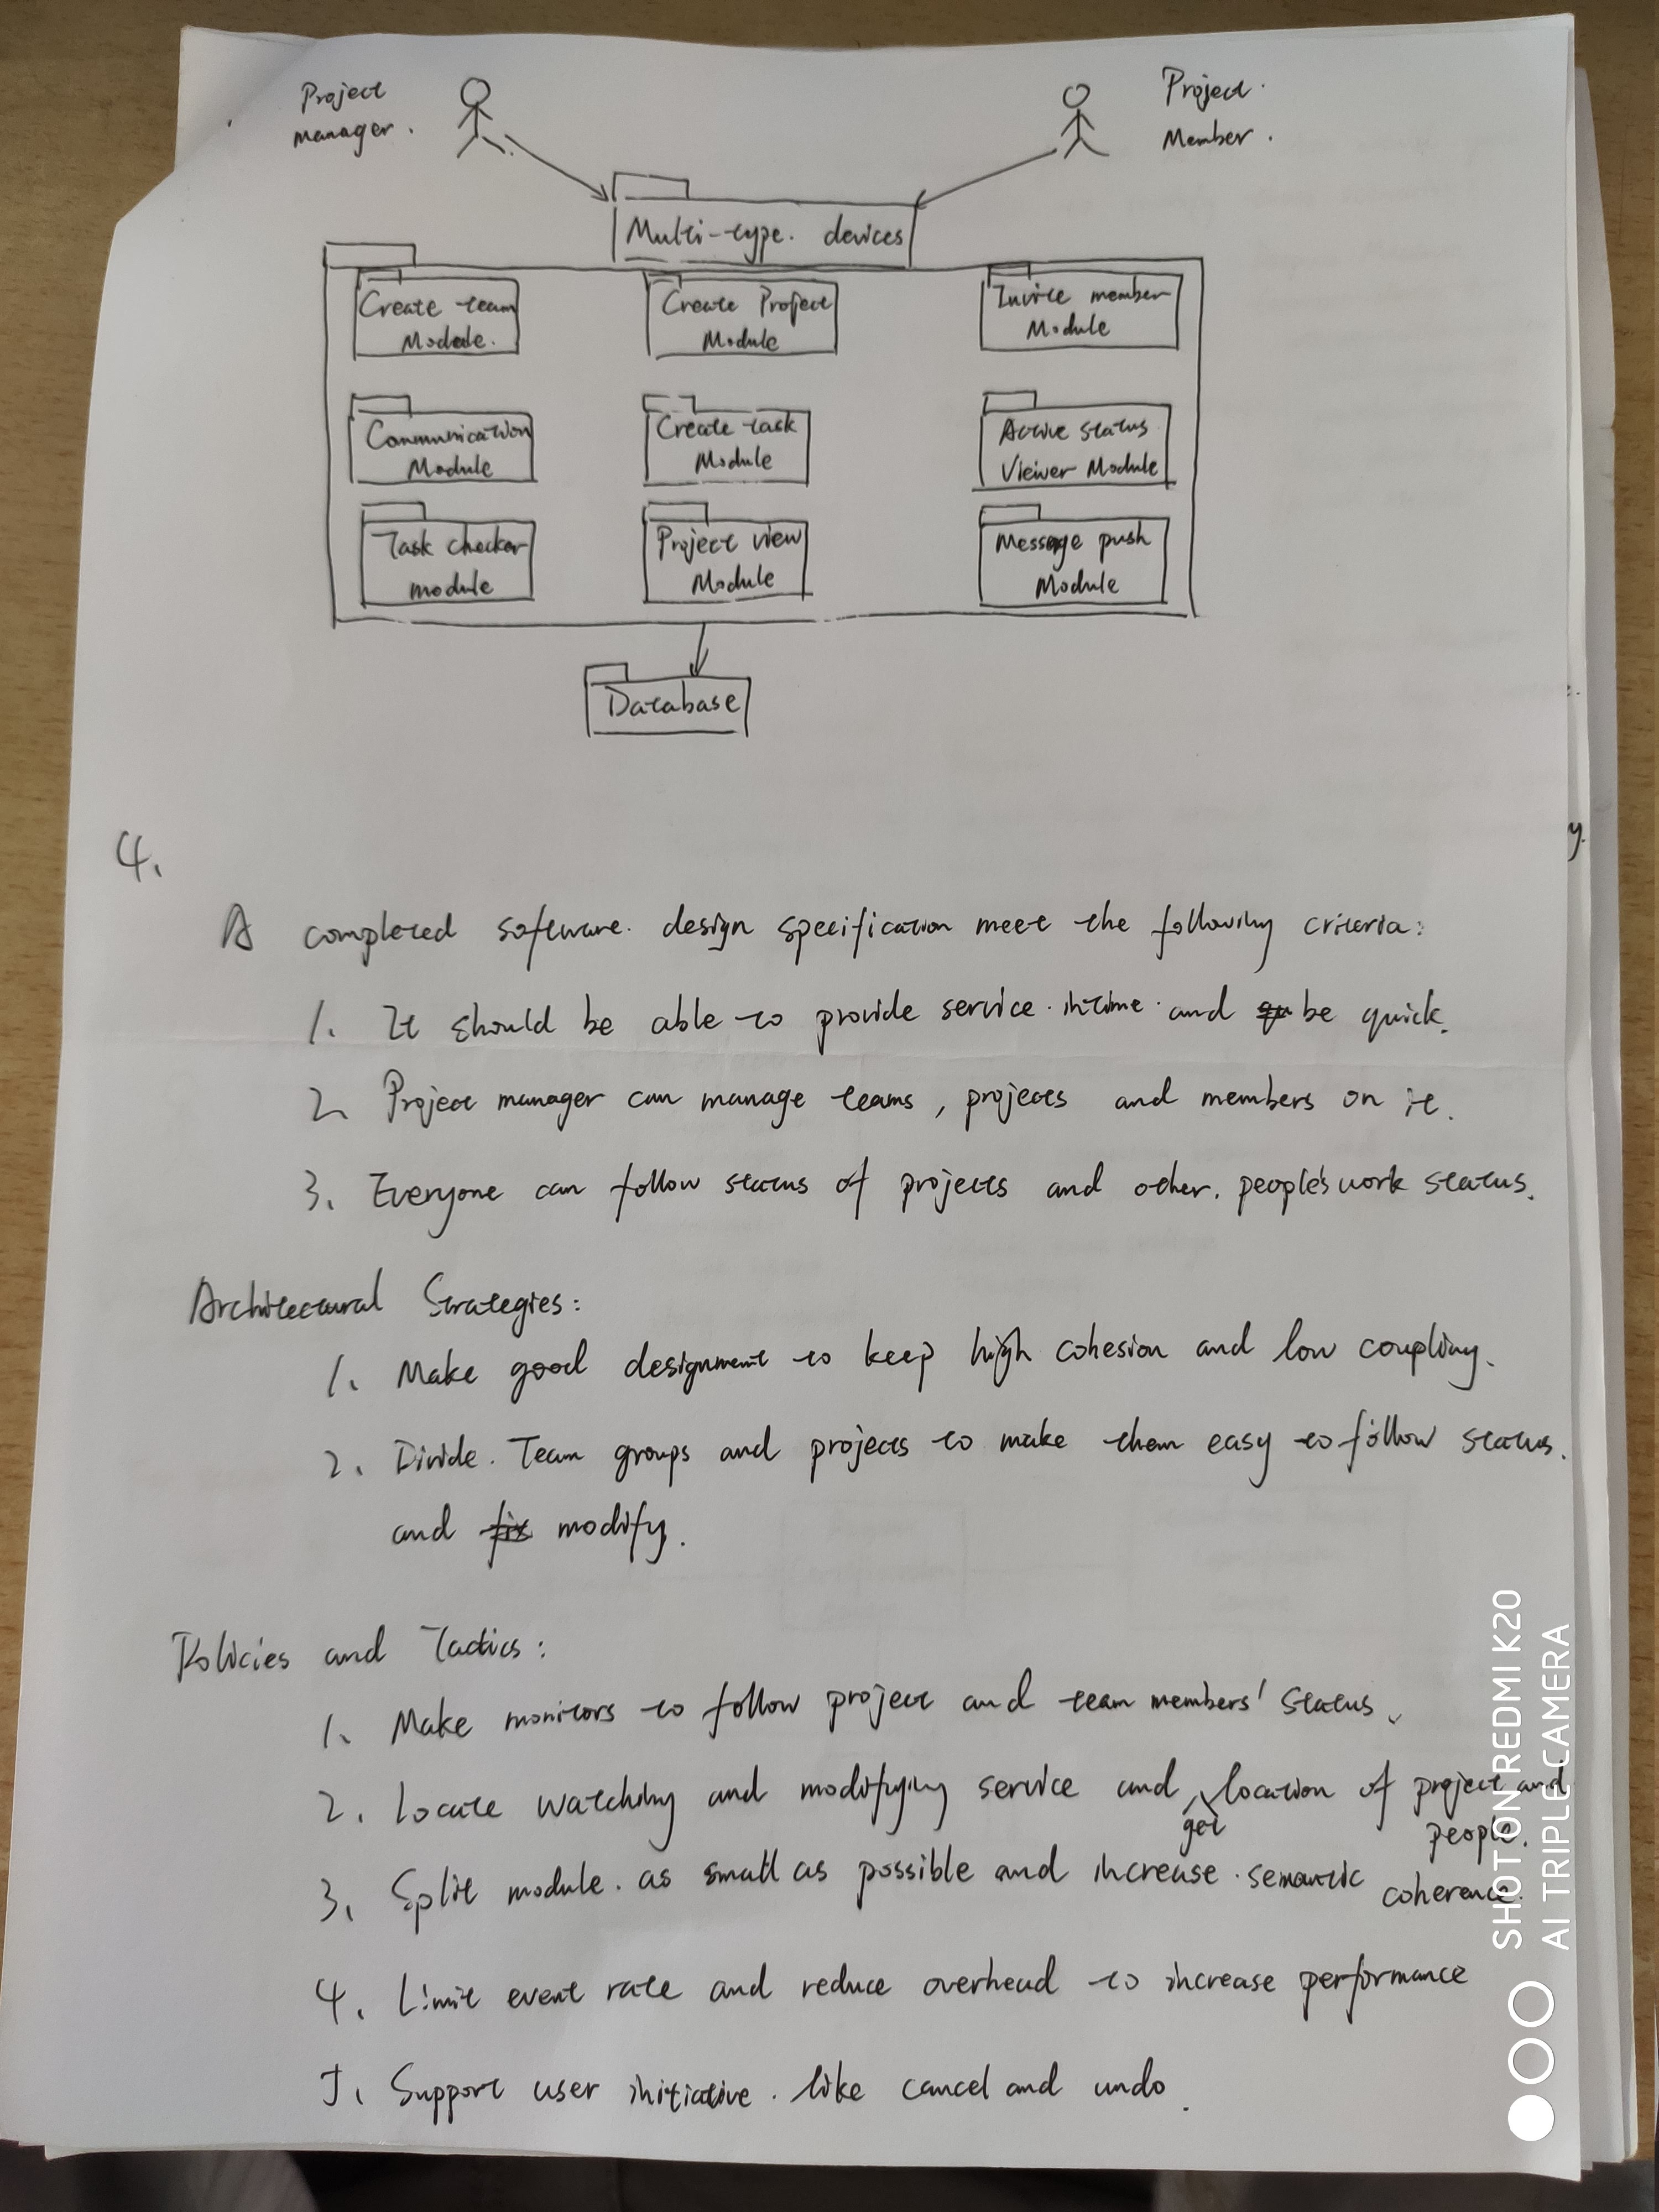 Project
manager.
Project
Member.
Multi-type devices
Create team
Module.
Create Project
Module
Invite member
Module
Communication
Module
Create task
Module
Active status
Viewer Module
Task checker
module
Project view
Module
Message push
Module
Database
4.
A completed software design specification meet the following criteria:
1. It should be able to provide service intime and be quick.
2. Project manager can manage teams, projects and members on it.
3. Everyone can follow status of projects and other people's work status.
Architectural Strategies:
1. Make good designment to keep high cohesion and low coupling.
2. Divide Team groups and projects to make them easy to follow status.
and fix modify.
Policies and Tactics:
1. Make monitors to follow project and team members' status.
2. Locate watching and modifying service and get location of project and
people.
3. Split module as small as possible and increase semantic coherence.
4. Limit event rate and reduce overhead to increase performance
5. Support user initiative like cancel and undo.
y.
SHOT ON REDMI K20
AI TRIPLE CAMERA